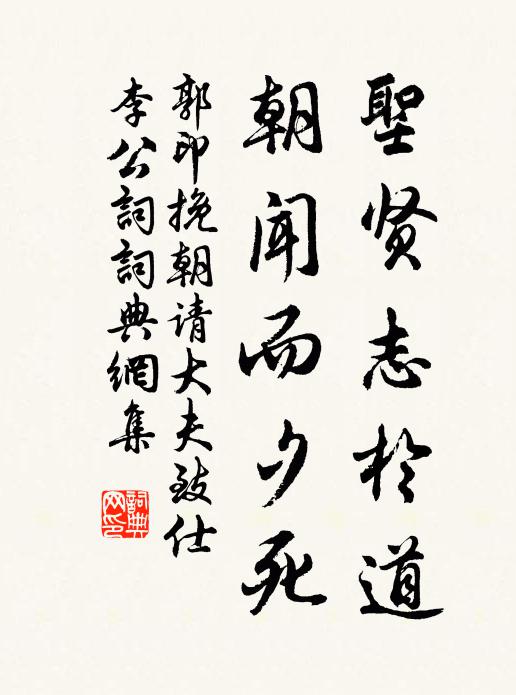 聖贤志於道
朝聞而夕死
郭印挽朝请大夫致仕
李公詞詞典網集
詞典网印